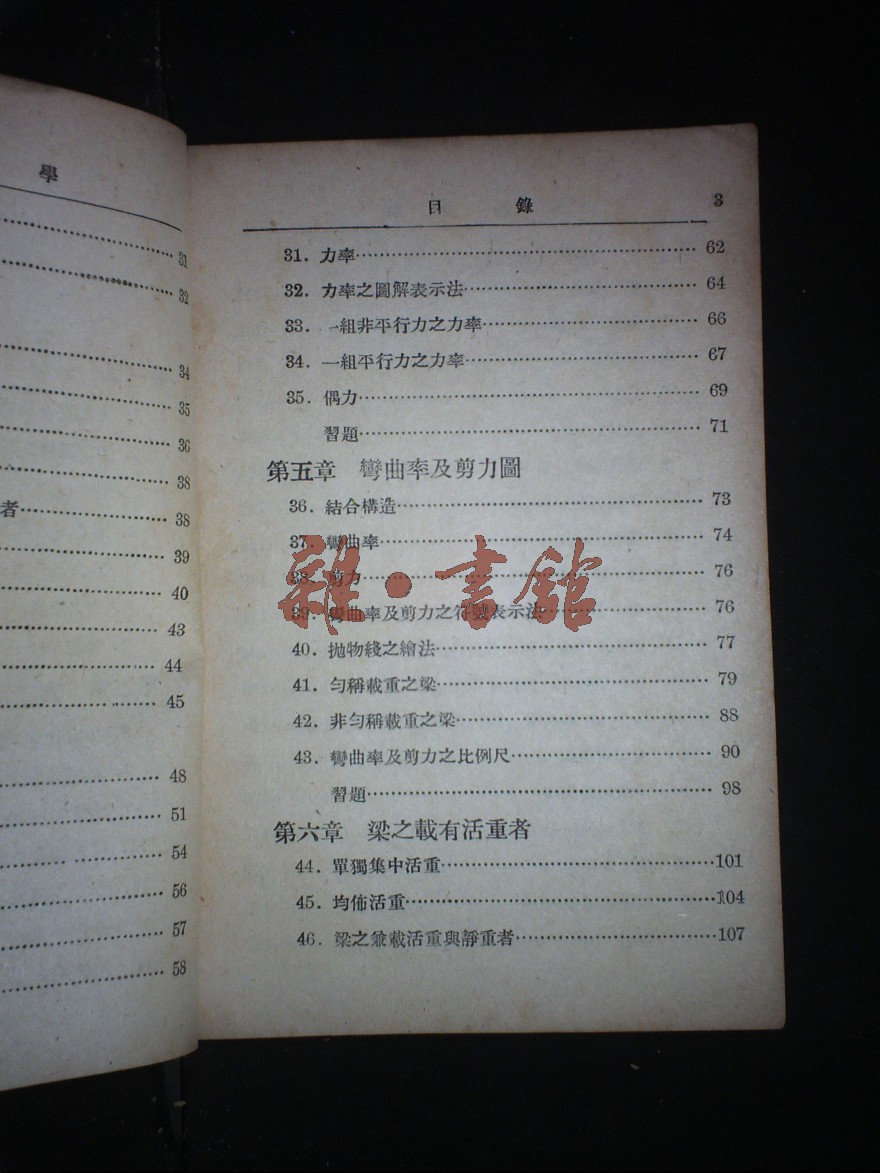 學
31
32
34
35
36
38
者 38
39
40
43
44
45
48
51
54
56
57
58
目錄 3
31. 力率 62
32. 力率之圖解表示法 64
33. 一組非平行力之力率 66
34. 一組平行力之力率 67
35. 偶力 69
習題 71
第五章 彎曲率及剪力圖
36. 結合構造 73
37. 彎曲率 74
38. 剪力 76
39. 彎曲率及剪力之符號表示法 76
40. 拋物綫之繪法 77
41. 勻稱載重之梁 79
42. 非勻稱載重之梁 88
43. 彎曲率及剪力之比例尺 90
習題 98
第六章 梁之載有活重者
44. 單獨集中活重 101
45. 均佈活重 104
46. 梁之兼載活重與靜重者 107
雜·書館